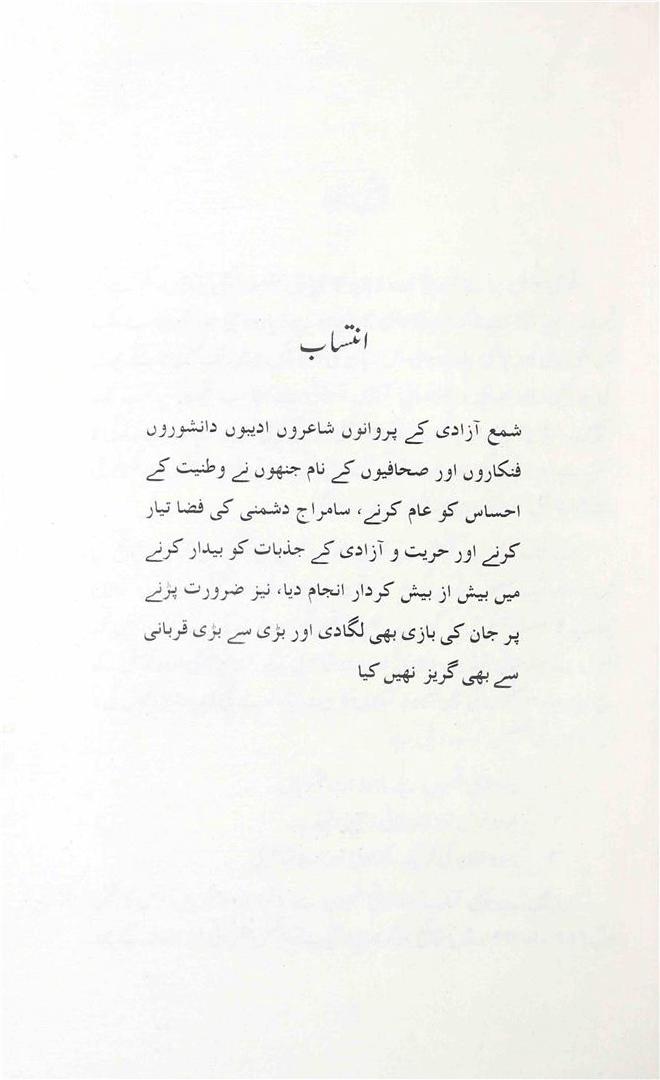 انتساب
شمع آزادی کے پروانوں شاعروں ادیبوں دانشوروں
فنکاروں اور صحافیوں کے نام جنھوں نے وطنیت کے
احساس کو عام کرنے، سامراج دشمنی کی فضا تیار
کرنے اور حریت و آزادی کے جذبات کو بیدار کرنے
میں بیش از بیش کردار انجام دیا، نیز ضرورت پڑنے
پر جان کی بازی بھی لگادی اور بڑی سے بڑی قربانی
سے بھی گریز نھیں کیا